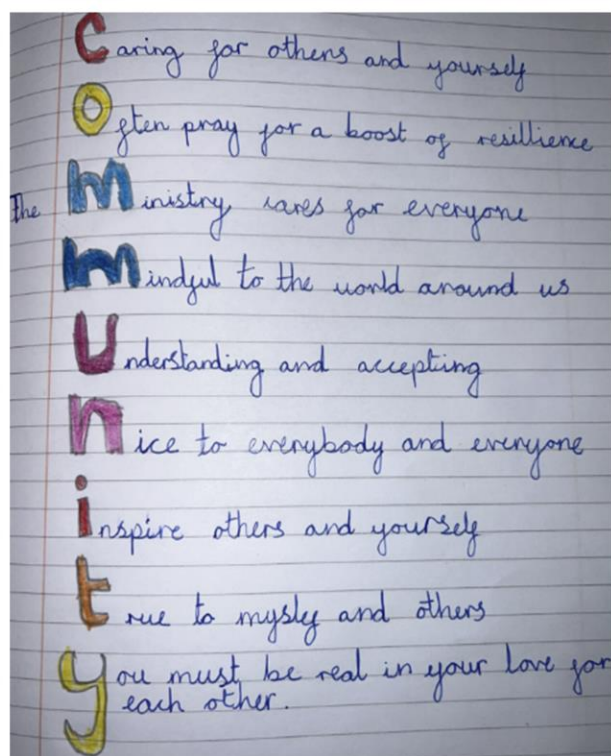 Caring for others and yourself
Often pray for a boost of resillience
The Ministry cares for everyone
Mindful to the world around us
Understanding and accepting
Nice to everybody and everyone
inspire others and yourself
true to mysly and others
You must be real in your love for
each other.